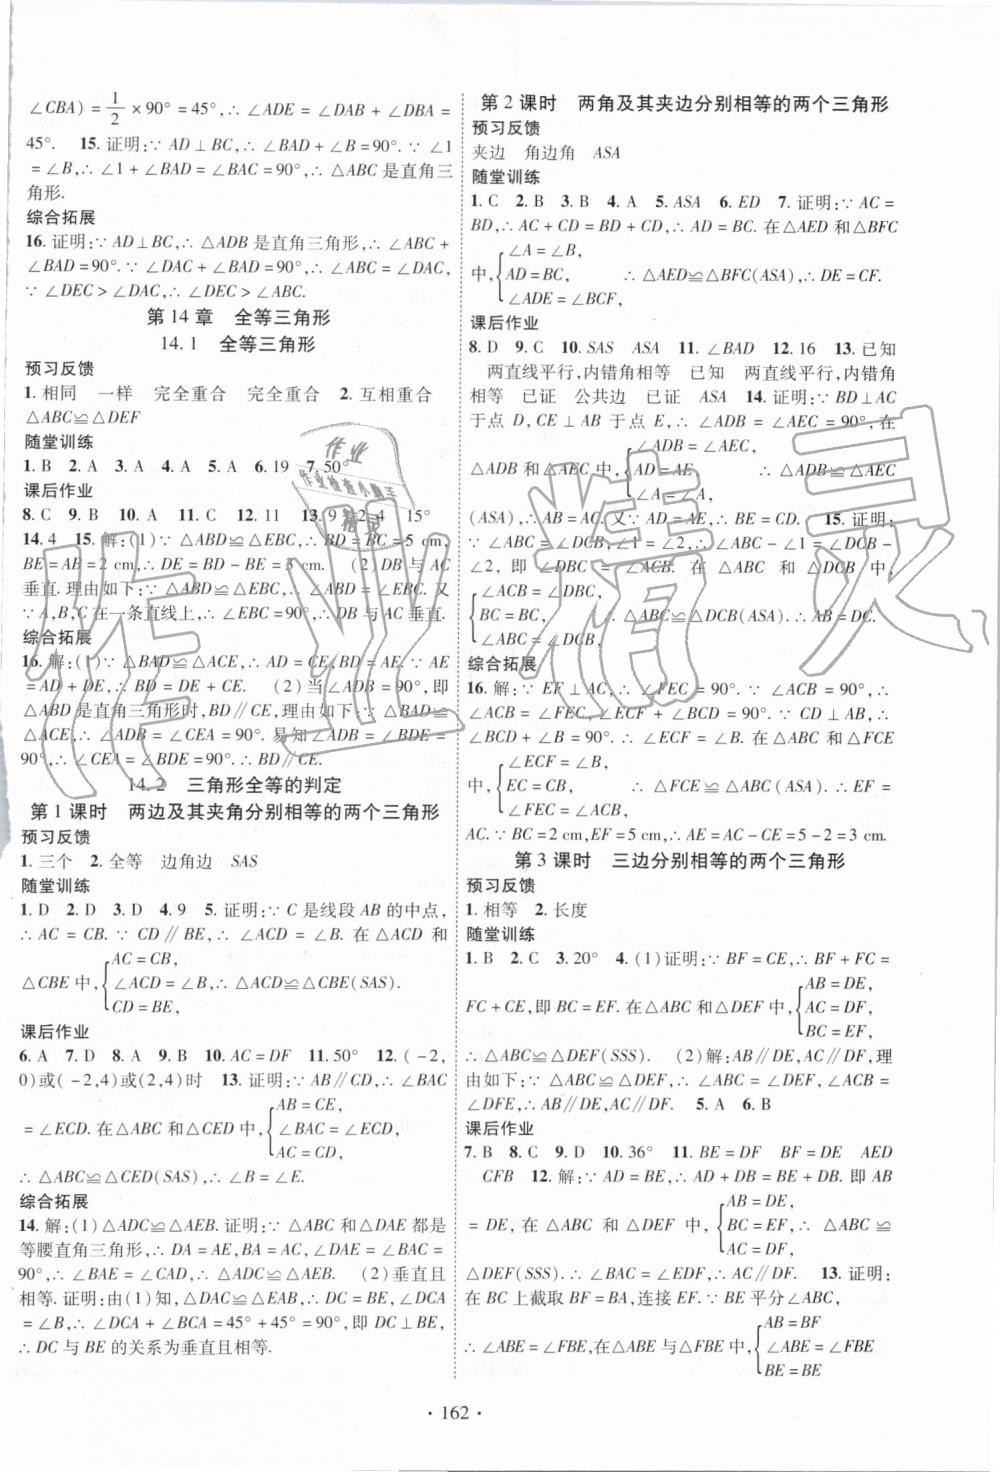 ∠CBA) = 1/2 × 90° = 45°, ∴ ∠ADE = ∠DAB + ∠DBA =
45°. 15. 证明: ∵ AD⊥BC, ∴ ∠BAD + ∠B = 90°. ∵ ∠1
= ∠B, ∴ ∠1 + ∠BAD = ∠BAC = 90°, ∴ △ABC 是直角三
角形.
综合拓展
16. 证明: ∵ AD⊥BC, ∴ △ADB 是直角三角形, ∴ ∠ABC +
∠BAD = 90°. ∵ ∠DAC + ∠BAD = 90°, ∴ ∠ABC = ∠DAC,
∵ ∠DEC > ∠DAC, ∴ ∠DEC > ∠ABC.
第 14 章 全等三角形
14.1 全等三角形
预习反馈
1. 相同 一样 完全重合 完全重合 2. 互相重合
△ABC≌△DEF
随堂训练
1. B 2. A 3. A 4. A 5. A 6. 19 7. 50°
课后作业
8. C 9. B 10. A 11. C 12. 11 13. 9 2 4 15°
14. 4 15. 解: (1) ∵ △ABD≌△EBC, ∴ BD = BC = 5 cm,
BE = AB = 2 cm, ∴ DE = BD − BE = 3 cm. (2) DB 与 AC
垂直. 理由如下: ∵ △ABD≌△EBC, ∴ ∠ABD = ∠EBC. 又
∵ A, B, C 在一条直线上, ∴ ∠EBC = 90°, ∴ DB 与 AC 垂直.
综合拓展
16. 解: (1) ∵ △BAD≌△ACE, ∴ AD = CE, BD = AE. ∵ AE
= AD + DE, ∴ BD = DE + CE. (2) 当∠ADB = 90°, 即
△ABD 是直角三角形时, BD∥CE, 理由如下: ∵ △BAD≌
△ACE, ∴ ∠ADB = ∠CEA = 90°. 易知∠ADB = ∠BDE =
90°, ∴ ∠CEA = ∠BDE = 90°. ∴ BD∥CE.
14.2 三角形全等的判定
第 1 课时 两边及其夹角分别相等的两个三角形
预习反馈
1. 三个 2. 全等 边角边 SAS
随堂训练
1. D 2. D 3. D 4. 9 5. 证明: ∵ C 是线段 AB 的中点,
∴ AC = CB. ∵ CD∥BE, ∴ ∠ACD = ∠B. 在△ACD 和
AC = CB,
△CBE 中, { ∠ACD = ∠B, ∴ △ACD≌△CBE(SAS).
CD = BE,
课后作业
6. A 7. D 8. A 9. B 10. AC = DF 11. 50° 12. ( −2,
0)或( −2,4)或(2,4)时 13. 证明: ∵ AB∥CD, ∴ ∠BAC
AB = CE,
= ∠ECD. 在△ABC 和△CED 中, { ∠BAC = ∠ECD,
AC = CD,
∴ △ABC≌△CED(SAS), ∴ ∠B = ∠E.
综合拓展
14. 解: (1) △ADC≌△AEB. 证明: ∵ △ABC 和△DAE 都是
等腰直角三角形, ∴ DA = AE, BA = AC, ∠DAE = ∠BAC =
90°, ∴ ∠BAE = ∠CAD, ∴ △ADC≌△AEB. (2) 垂直且
相等. 证明: 由(1)知, △DAC≌△EAB, ∴ DC = BE, ∠DCA
= ∠DCA + ∠BCA = 45° + 45° = 90°, 即 DC⊥BE,
∴ DC 与 BE 的关系为垂直且相等.
第 2 课时 两角及其夹边分别相等的两个三角形
预习反馈
夹边 角边角 ASA
随堂训练
1. C 2. B 3. B 4. A 5. ASA 6. ED 7. 证明: ∵ AC =
BD, ∴ AC + CD = BD + CD = BC. 在△AED 和△BFC
∠A = ∠B,
中, { AD = BC, ∴ △AED≌△BFC(ASA), ∴ DE = CF.
∠ADE = ∠BCF,
课后作业
8. D 9. C 10. SAS ASA 11. ∠BAD 12. 16 13. 已知
两直线平行,内错角相等 已知 两直线平行,内错角
相等 已证 公共边 已证 ASA 14. 证明: ∵ BD⊥AC
于点 D, CE⊥AB 于点 E, ∴ ∠ADB = ∠AEC = 90°, 在
∠ADB = ∠AEC,
△ADB 和△AEC 中, { AD = AE, ∴ △ADB≌△AEC
∠A = ∠A,
(ASA), ∴ AB = AC. 又∵ AD = AE, ∴ BE = CD. 15. 证明:
∵ ∠ABC = ∠DCB, ∠1 = ∠2, ∴ ∠ABC − ∠1 = ∠DCB −
∠2, 即 ∠DBC = ∠ACB. 在 △ABC 和 △DCB 中,
∠ACB = ∠DBC,
{ BC = BC, ∴ △ABC≌△DCB(ASA). ∴ AB = DC.
∠ABC = ∠DCB,
综合拓展
16. 解: ∵ EF⊥AC, ∴ ∠FEC = 90°. ∵ ∠ACB = 90°, ∴
∠ACB = ∠FEC, ∠ECF + ∠BCD = 90°. ∵ CD⊥AB, ∴
∠BCD + ∠B = 90°. ∴ ∠ECF = ∠B. 在△ABC 和△FCE
∠ECF = ∠B,
中, { EC = CB, ∴ △FCE≌△ABC(ASA), ∴ FE =
∠FEC = ∠ACB,
AC. ∵ BC = 2 cm, EF = 5 cm, ∴ AE = AC − CE = 5 − 2 = 3 cm.
第 3 课时 三边分别相等的两个三角形
预习反馈
1. 相等 2. 长度
随堂训练
1. B 2. C 3. 20° 4. (1)证明: ∵ BF = CE, ∴ BF + FC =
AB = DE,
FC + CE, 即 BC = EF. 在△ABC 和△DEF 中, { AC = DF,
BC = EF,
∴ △ABC≌△DEF(SSS). (2)解: AB∥DE, AC∥DF, 理
由如下: ∵ △ABC≌△DEF, ∴ ∠ABC = ∠DEF, ∠ACB =
∠DFE, ∴ AB∥DE, AC∥DF. 5. A 6. B
课后作业
7. B 8. C 9. D 10. 36° 11. BE = DF BF = DE AED
CFB 12. 解: ∵ AD = BE, ∴ AD + DB = BE + DB. 即 AB
AB = DE,
= DE, 在 △ABC 和 △DEF 中, { BC = EF, ∴ △ABC ≌
AC = DF,
△DEF(SSS). ∴ ∠BAC = ∠EDF, ∴ AC∥DF. 13. 证明:
在 BC 上截取 BF = BA, 连接 EF. ∵ BE 平分∠ABC,
AB = BF
∴ ∠ABE = ∠FBE, 在△ABE 与△FBE 中 { ∠ABE = ∠FBE
BE = BE,
· 162 ·
作业
作业检查小助手
精灵
作业精灵